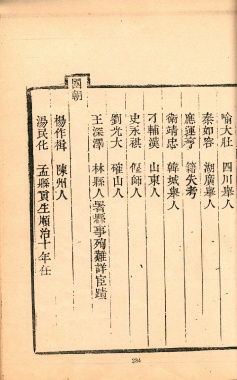 喻大壯 四川舉人
秦如容 湖廣舉人
應運亨 籍失考
衛靖忠 韓城舉人
刁輔漢 山東人
史永祺 偃師人
劉光大 確山人
王深澤 林縣人署縣事殉難詳宦蹟
國朝
楊作楫 陳州人
湯民化 孟縣貢生順治十年任
284